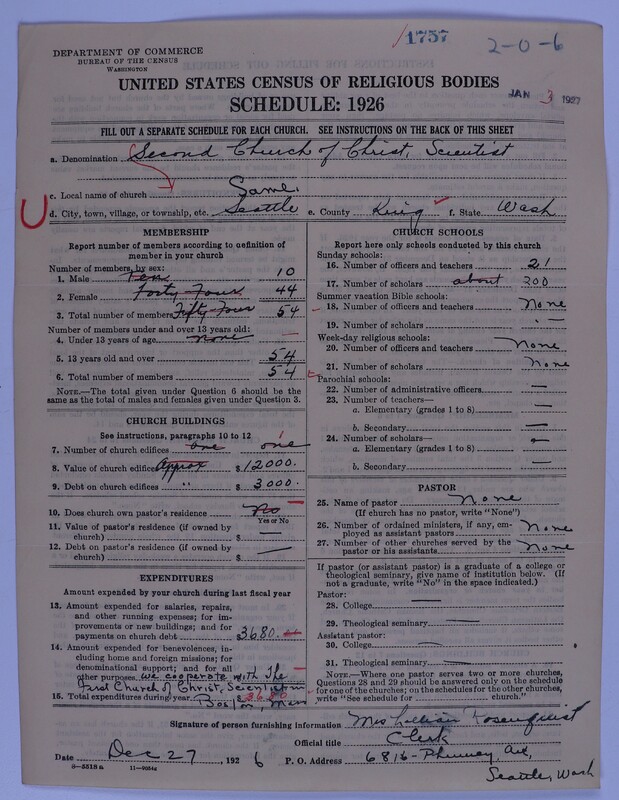 1757
2-0-6
DEPARTMENT OF COMMERCE
BUREAU OF THE CENSUS
WASHINGTON
UNITED STATES CENSUS OF RELIGIOUS BODIES
SCHEDULE: 1926
JAN 3 1927
FILL OUT A SEPARATE SCHEDULE FOR EACH CHURCH. SEE INSTRUCTIONS ON THE BACK OF THIS SHEET
a. Denomination Second Church of Christ, Scientist
c. Local name of church Same.
d. City, town, village, or township, etc. Seattle e. County King f. State Wash
MEMBERSHIP
Report number of members according to definition of
member in your church
Number of members, by sex:
1. Male Ten 10
2. Female Forty-Four 44
3. Total number of members Fifty Four 54
Number of members under and over 13 years old:
4. Under 13 years of age none —
5. 13 years old and over 54
6. Total number of members 54
NOTE.—The total given under Question 6 should be
same as the total of males and females given under Question 3.
CHURCH BUILDINGS
See instructions, paragraphs 10 to 12
7. Number of church edifices one one 1
8. Value of church edifices Approx $12000.
9. Debt on church edifices " $3000.
10. Does church own pastor's residence No
Yes or No
11. Value of pastor's residence (if owned by
church) $ —
12. Debt on pastor's residence (if owned by
church) $ —
EXPENDITURES
Amount expended by your church during last fiscal year
13. Amount expended for salaries, repairs,
and other running expenses; for im-
provements or new buildings; and for
payments on church debt 3680.
14. Amount expended for benevolences, in-
cluding home and foreign missions; for
denominational support; and for all
other purposes we cooperate with The
First Church of Christ, Scientist in
15. Total expenditures during year $3680
Boston, Mass
CHURCH SCHOOLS
Report here only schools conducted by this church
Sunday schools:
16. Number of officers and teachers 21
17. Number of scholars about 200
Summer vacation Bible schools:
18. Number of officers and teachers None
19. Number of scholars " —
Week-day religious schools:
20. Number of officers and teachers None
21. Number of scholars None
Parochial schools:
22. Number of administrative officers —
23. Number of teachers—
a. Elementary (grades 1 to 8) —
b. Secondary —
24. Number of scholars—
a. Elementary (grades 1 to 8) —
b. Secondary —
PASTOR
25. Name of pastor None
(If church has no pastor, write "None")
26. Number of ordained ministers, if any, em-
ployed as assistant pastors None
27. Number of other churches served by the
pastor or his assistants None
If pastor (or assistant pastor) is a graduate of a college or
theological seminary, give name of institution below. (If
not a graduate, write "No" in the space indicated.)
Pastor:
28. College —
29. Theological seminary —
Assistant pastor:
30. College —
31. Theological seminary —
NOTE.—Where one pastor serves two or more churches,
Questions 28 and 29 should be answered only on the schedule
for one of the churches; on the schedules for the other churches,
write "See schedule for church."
Signature of person furnishing information Mrs Lillian Rosenquist
Official title Clerk
Date Dec 27, 1926 P. O. Address 6816-Phinney Ave,
Seattle, Wash
8—5518 a 11—9954